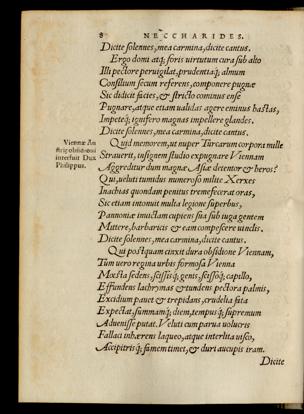 8 NECCHARIDES.
Dicite solennes, mea carmina, dicite cantus.
Ergo domi atq; foris uirtutum cura sub alto
Illi pectore peruigilat, prudentiaq; almum
Consilium secum referens, componere pugnæ
Sic didicit facies, & stricto cominus ense
Pugnare, atque etiam ualidas agere eminus hastas,
Impeteq; ignifero magnas impellere glandes.
Dicite solennes, mea carmina, dicite cantus.
Quid memorem, ut nuper Turcarum corpora mille
Viennæ Au
striæ obsidioni
interfuit Dux
Philippus.
Strauerit, insignem studio expugnare Viennam
Aggreditur dum magnæ Asiæ detentor & heros?
Qui, ueluti tumidus numeroso milite Xerxes
Inachias quondam penitus tremefecerat oras,
Sic etiam intonuit multa legione superbus,
Pannoniæ inuictam cupiens sua sub iuga gentem
Mittere, barbaricis & eam compescere uinclis.
Dicite solennes, mea carmina, dicite cantus.
Qui postquam cinxit dura obsidione Viennam,
Tum uero regina urbis formosa Vienna
Mœsta sedens, scissisq; genis, scissoq; capillo,
Effundens lachrymas & tundens pectora palmis,
Excidium pauet & trepidans, crudelia fata
Expectat, summamq; diem, tempusq; supremum
Aduenisse putat. Veluti cum parua uolucris
Fallaci inhærens laqueo, atque interlita uisco,
Accipitrisq; famem timet, & duri aucupis iram.
Dicite